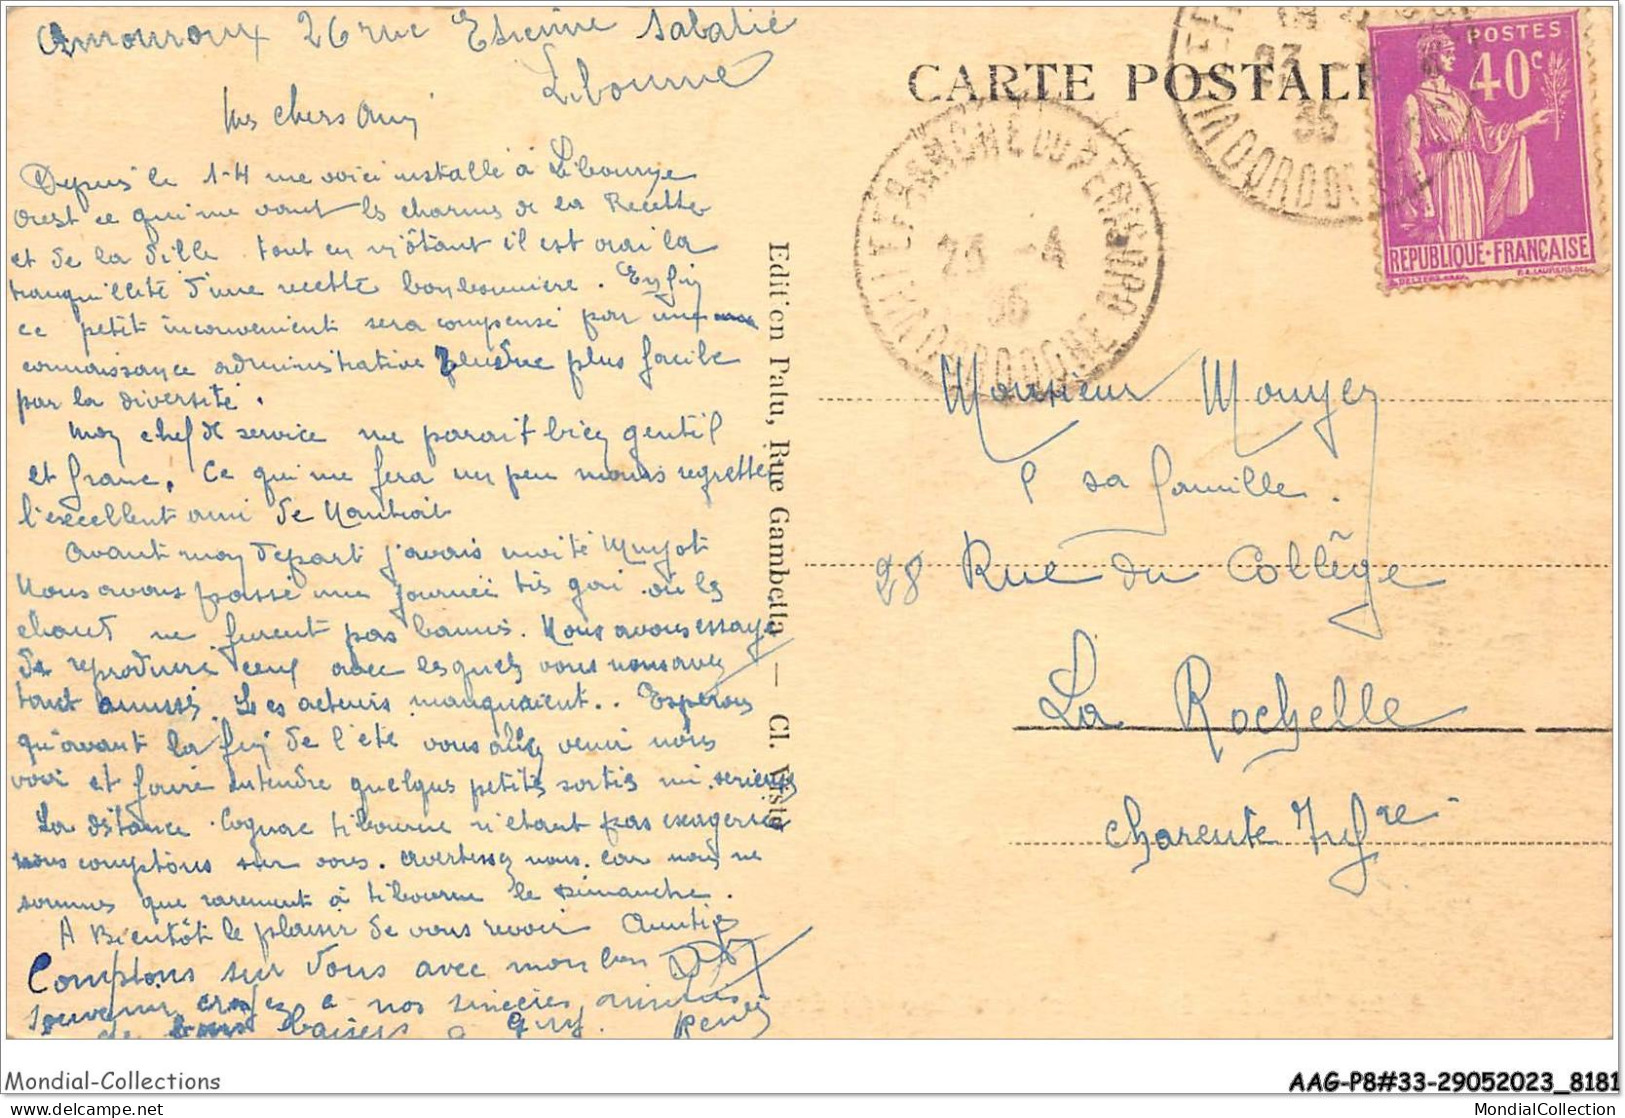 Amouroux 26 rue Etienne Sabatié
Libourne
Mes chers Amis
Depuis le 1-4 me voici installé à Libourne
c'est ce qui me vaut les charmes de la Recette
et de la ville tout en m'ôtant il est vrai la
tranquillité d'une recette bourbonnière. Enfin
ce petit inconvenient sera compensé par une
connaissance administrative rendue plus facile
par la diversité.
Mon chef de service me parait bien gentil
et franc. Ce qui me fera un peu moins regretter
l'excellent ami de
Avant mon départ j'avais invité
Nous avons passé une journée très gai où les
chants ne furent pas bannis. Nous avons essayé
de reproduire ceux avec lesquels vous nous avez
tant amusés. Les acteurs manquaient.. Esperons
qu'avant la fin de l'été vous allez venir nous
voir et faire entendre quelques petites sorties mi. serieuses
La distance Cognac Libourne n'etant pas exagerée
nous comptons sur vous. avertissez nous. car nous ne
sommes que rarement à Libourne le Dimanche.
A Bientôt le plaisir de vous revoir Amitiés
Comptons sur vous avec mon bon
souvenir croyez à nos sincères amitiés
de bons baisers à Guy. Renée
Edition Patu, Rue Gambetta — Cl. Vista
CARTE POSTALE
VILLEFRANCHE DU PERIGORD
23 -4
35
DORDOGNE
POSTES
40c
REPUBLIQUE·FRANÇAISE
Monsieur Mouyen
& sa famille.
28 Rue du Collège
La Rochelle
Charente Infre
Mondial-Collections
AAG-P8#33-29052023_8181
MondialCollection